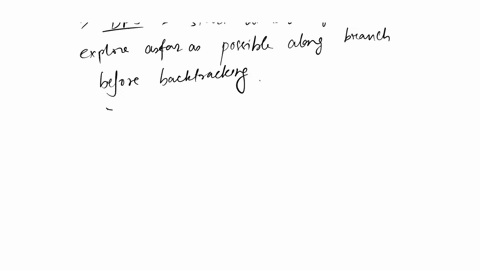 DFS
explore as far as possible along branch
before backtracking.